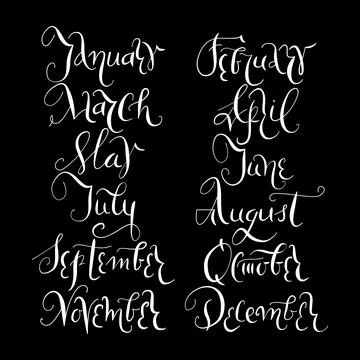 January February
March April
May June
July August
September October
November December